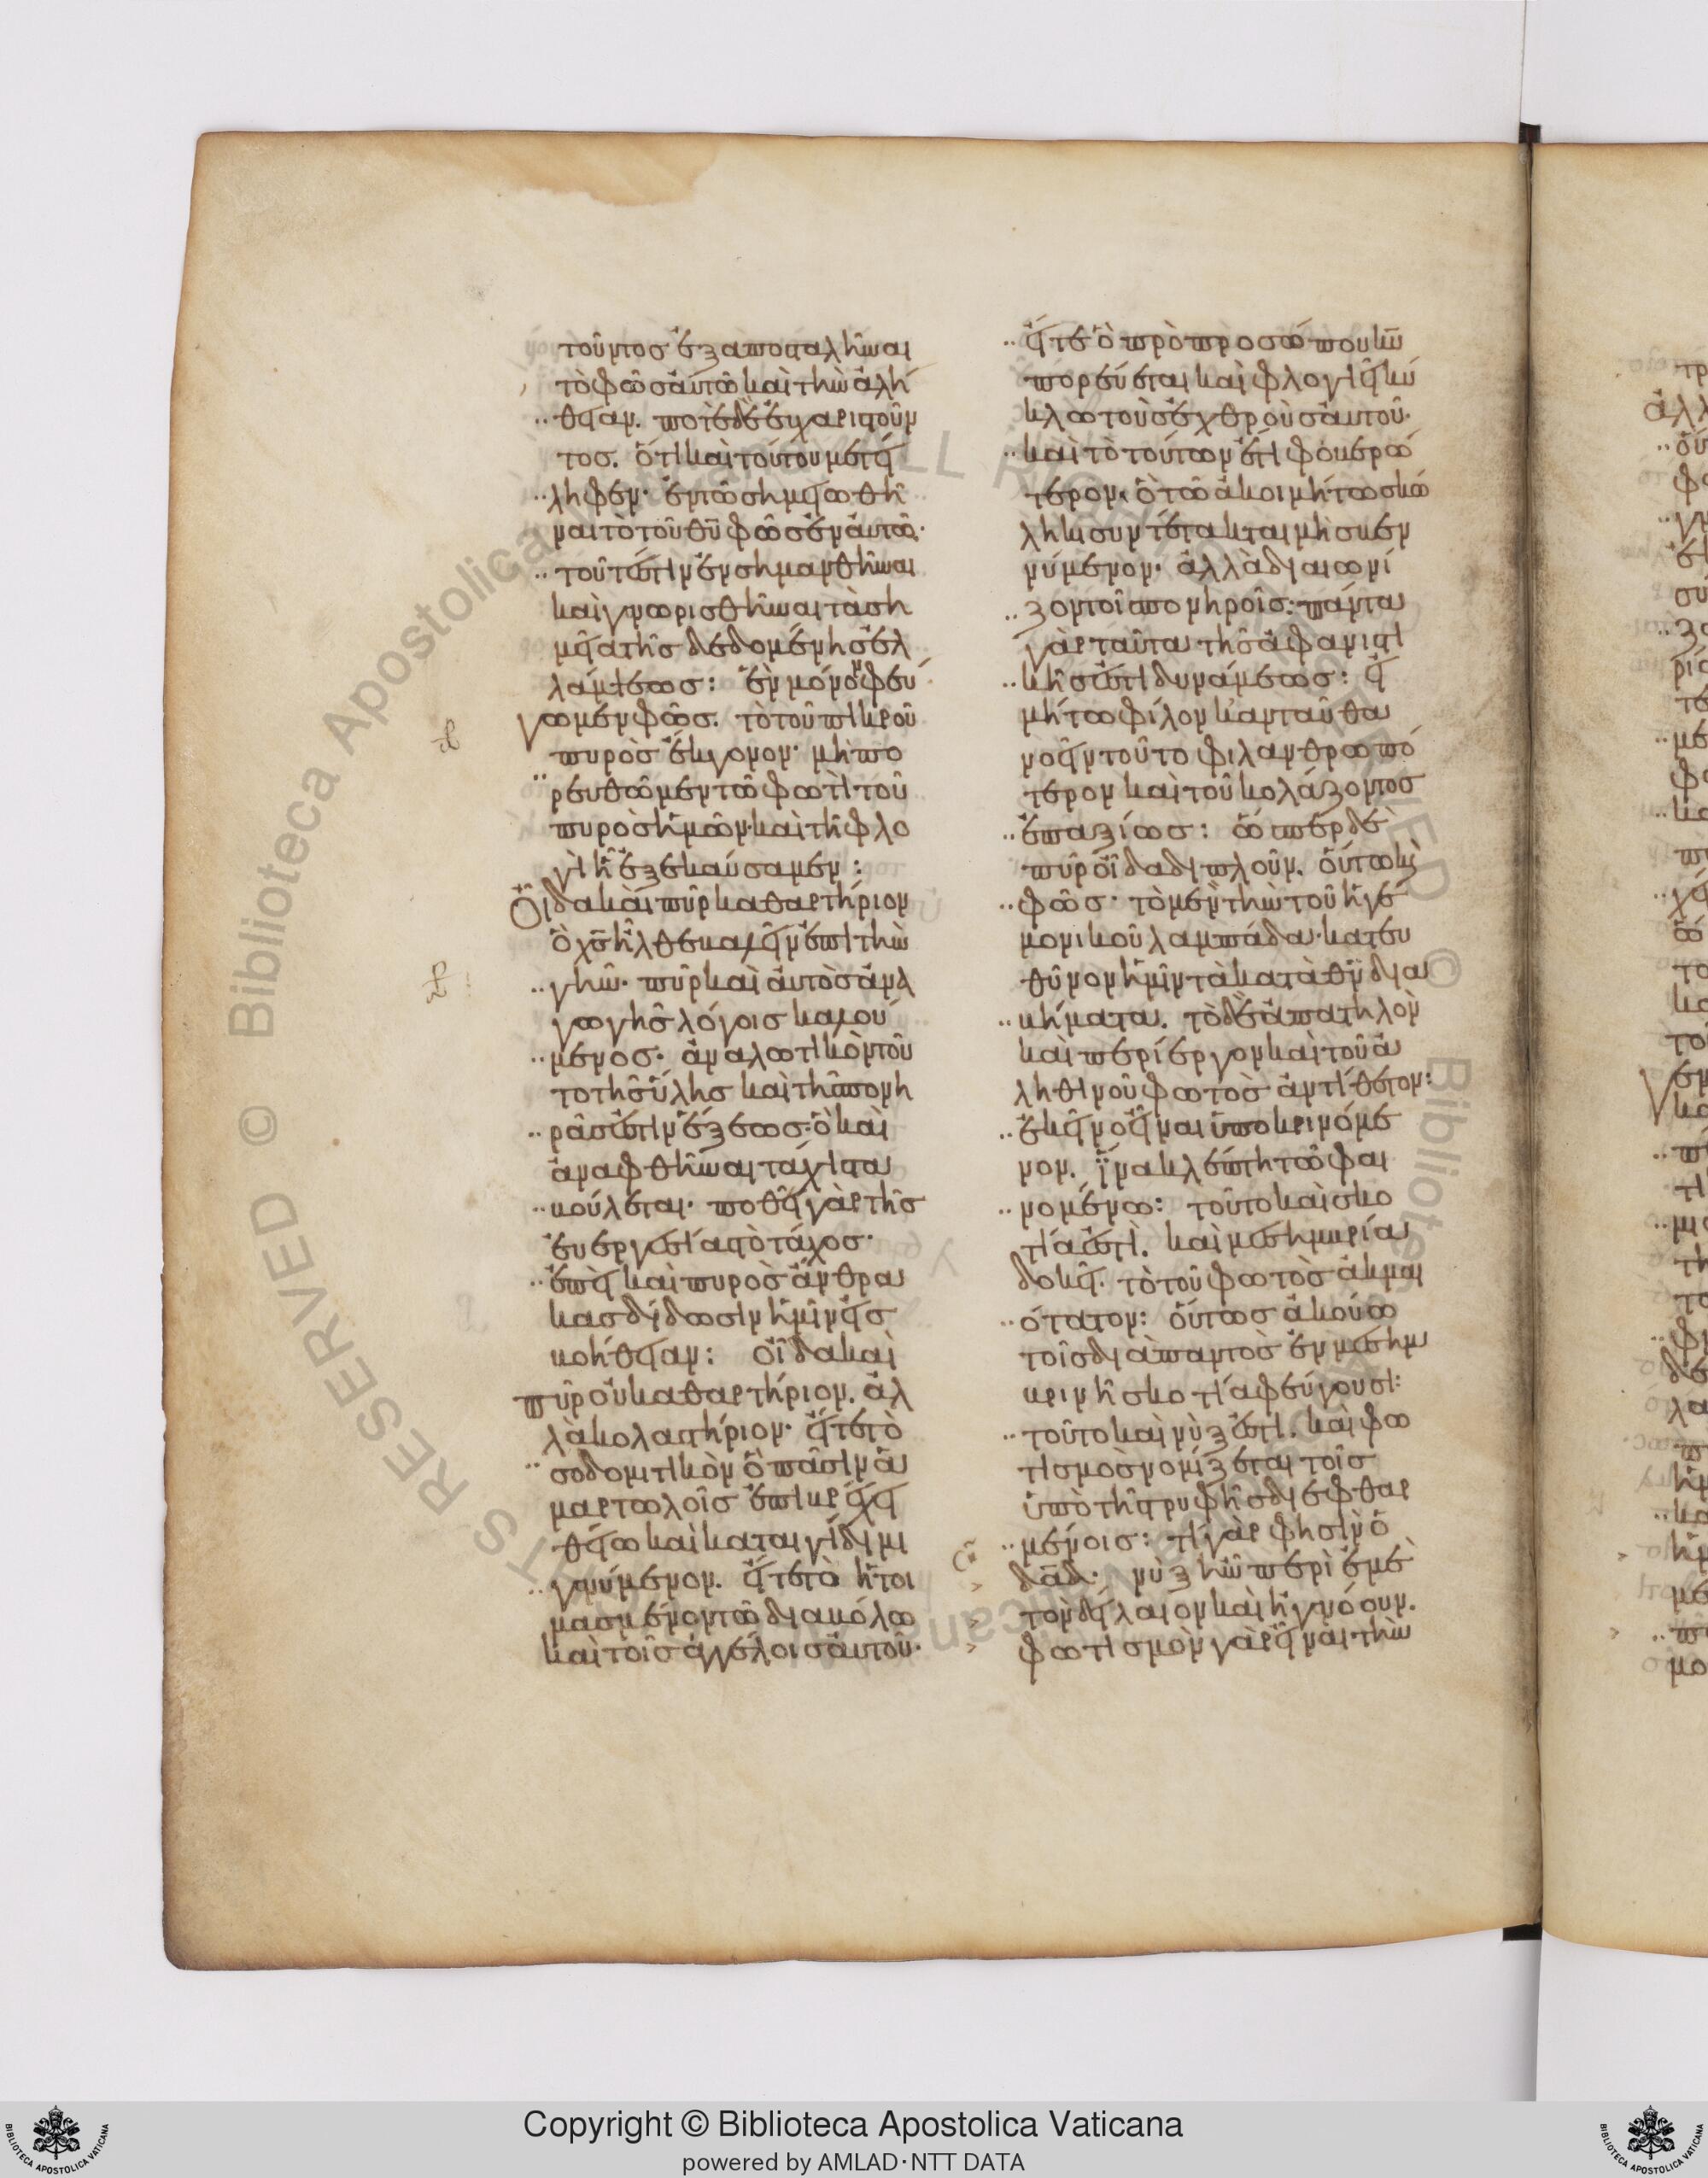 τοῦντος ἐξαποσταλῆναι
τὸ φῶς αὐτῶ καὶ τὴν ἀλή
θειαν. ποτὲ δὲ εὐχαριστοῦν
τος. ὅτι καὶ τούτου μετεί
ληφεν· ἐν τῶ σημειωθῆ
ναι τὸ τοῦ θῡ φῶς ἐν αὐτῶ·
τοῦτ' ἔστιν ἐνσημανθῆναι
καὶ γνωρισθῆναι τὰ ση
μεῖα τῆς δεδομένης ἐλ
λάμψεως: ἓν μόνον φεύ
γωμεν φῶς. τὸ τοῦ πικροῦ
πυρὸς ἔκγονον· μὴ πο
ρευθῶμεν τῶ φωτὶ τοῦ
πυρὸς ἡμῶν· καὶ τῆ φλο
γὶ ἧ ἐξεκαύσαμεν:
Οἶδα καὶ πῦρ καθαρτήριον
ὃ χς̄ ἦλθε βαλεῖν ἐπὶ τὴν
γῆν· πῦρ καὶ αὐτὸς ἀνα
γωγῆς λόγοις καλού
μενος· ἀναλωτικὸν τοῦ
το τῆς ὕλης καὶ τῆς πονη
ρᾶς ἐστὶν ἕξεως· ὃ καὶ
ἀναφθῆναι τάχιστα
βούλεται· ποθεῖ γὰρ τῆς
εὐεργεσίας τὸ τάχος·
ἐπεὶ καὶ πυρὸς ἄνθρα
κας δίδωσιν ἡμῖν εἰς
βοήθειαν: οἶδα καὶ
πῦρ οὐ καθαρτήριον. ἀλ
λὰ κολαστήριον· εἴτε τὸ
σοδομιτικὸν ὃ πᾶσιν ἁ
μαρτωλοῖς ἐπιβρέχει
θείω καὶ καταιγίδι μι
γνύμενον. εἴτε τὸ ἡτοι
μασμένον τῶ διαβόλω
καὶ τοῖς ἀγγέλοις αὐτοῦ·
εἴτε ὃ πρὸ προσώπου κῡ
πορεύεται καὶ φλογιεῖ κύ
κλω τοὺς ἐχθροὺς αὐτοῦ·
καὶ τὸ τούτων ἔτι φοβερώ
τερον· ὃ τῶ ἀκοιμήτω σκώ
ληκι συντέτακται μὴ σβεν
νύμενον· ἀλλὰ διαιωνί
ζον τοῖς πονηροῖς: πάντα
γὰρ ταῦτα τῆς ἀφανιστι
κῆς ἐστι δυνάμεως: εἰ
μή τω φίλον κἀνταῦθα
νοεῖν τοῦτο φιλανθρωπό
τερον καὶ τοῦ κολάζοντος
ἐπαξίως: ὥσπερ δὲ
πῦρ οἶδα διπλοῦν. οὕτω κὶ
φῶς· τὸ μὲν τὴν τοῦ ἡγε
μονικοῦ λαμπάδα· κατευ
θῦνον ἡμῖν τὰ κατὰ θν̄ δια
βήματα. τὸ δὲ ἀπατηλὸν
καὶ περίεργον καὶ τοῦ ἀ
ληθινοῦ φωτὸς ἀντίθετον:
ἐκεῖνο εἶναι ὑποκρινόμε
νον. ἵνα κλέπτη τῶ φαι
νομένω: τοῦτο καὶ σκό
τία ἐστὶ. καὶ μεσημβρία
δοκεῖ. τὸ τοῦ φωτὸς ἀκμαι
ότατον: οὕτως ἀκούω
τοῖς διαπαντὸς ἐν μεσημ
βρινῆ σκοτία φεύγουσι:
τοῦτο καὶ νὺξ ἐστὶ. καὶ φω
τισμὸς νομίζεται τοῖς
ὑπὸ τῆς τρυφῆς διεφθαρ
μένοις: τί γάρ φησιν ὁ
δᾱδ· νὺξ ἦν περὶ ἐμὲ
τὸν δείλαιον καὶ ἠγνόουν.
φωτισμὸν γὰρ εἶναι τὴν